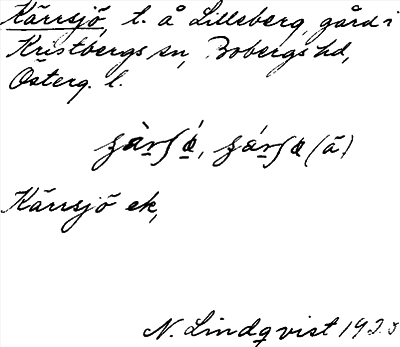 Kärrsjö, t. å Lilleberg, gård i
Kristbergs sn, Bobergs hd,
Österg. l.
Kärrsjö ek,
N. Lindqvist 1923